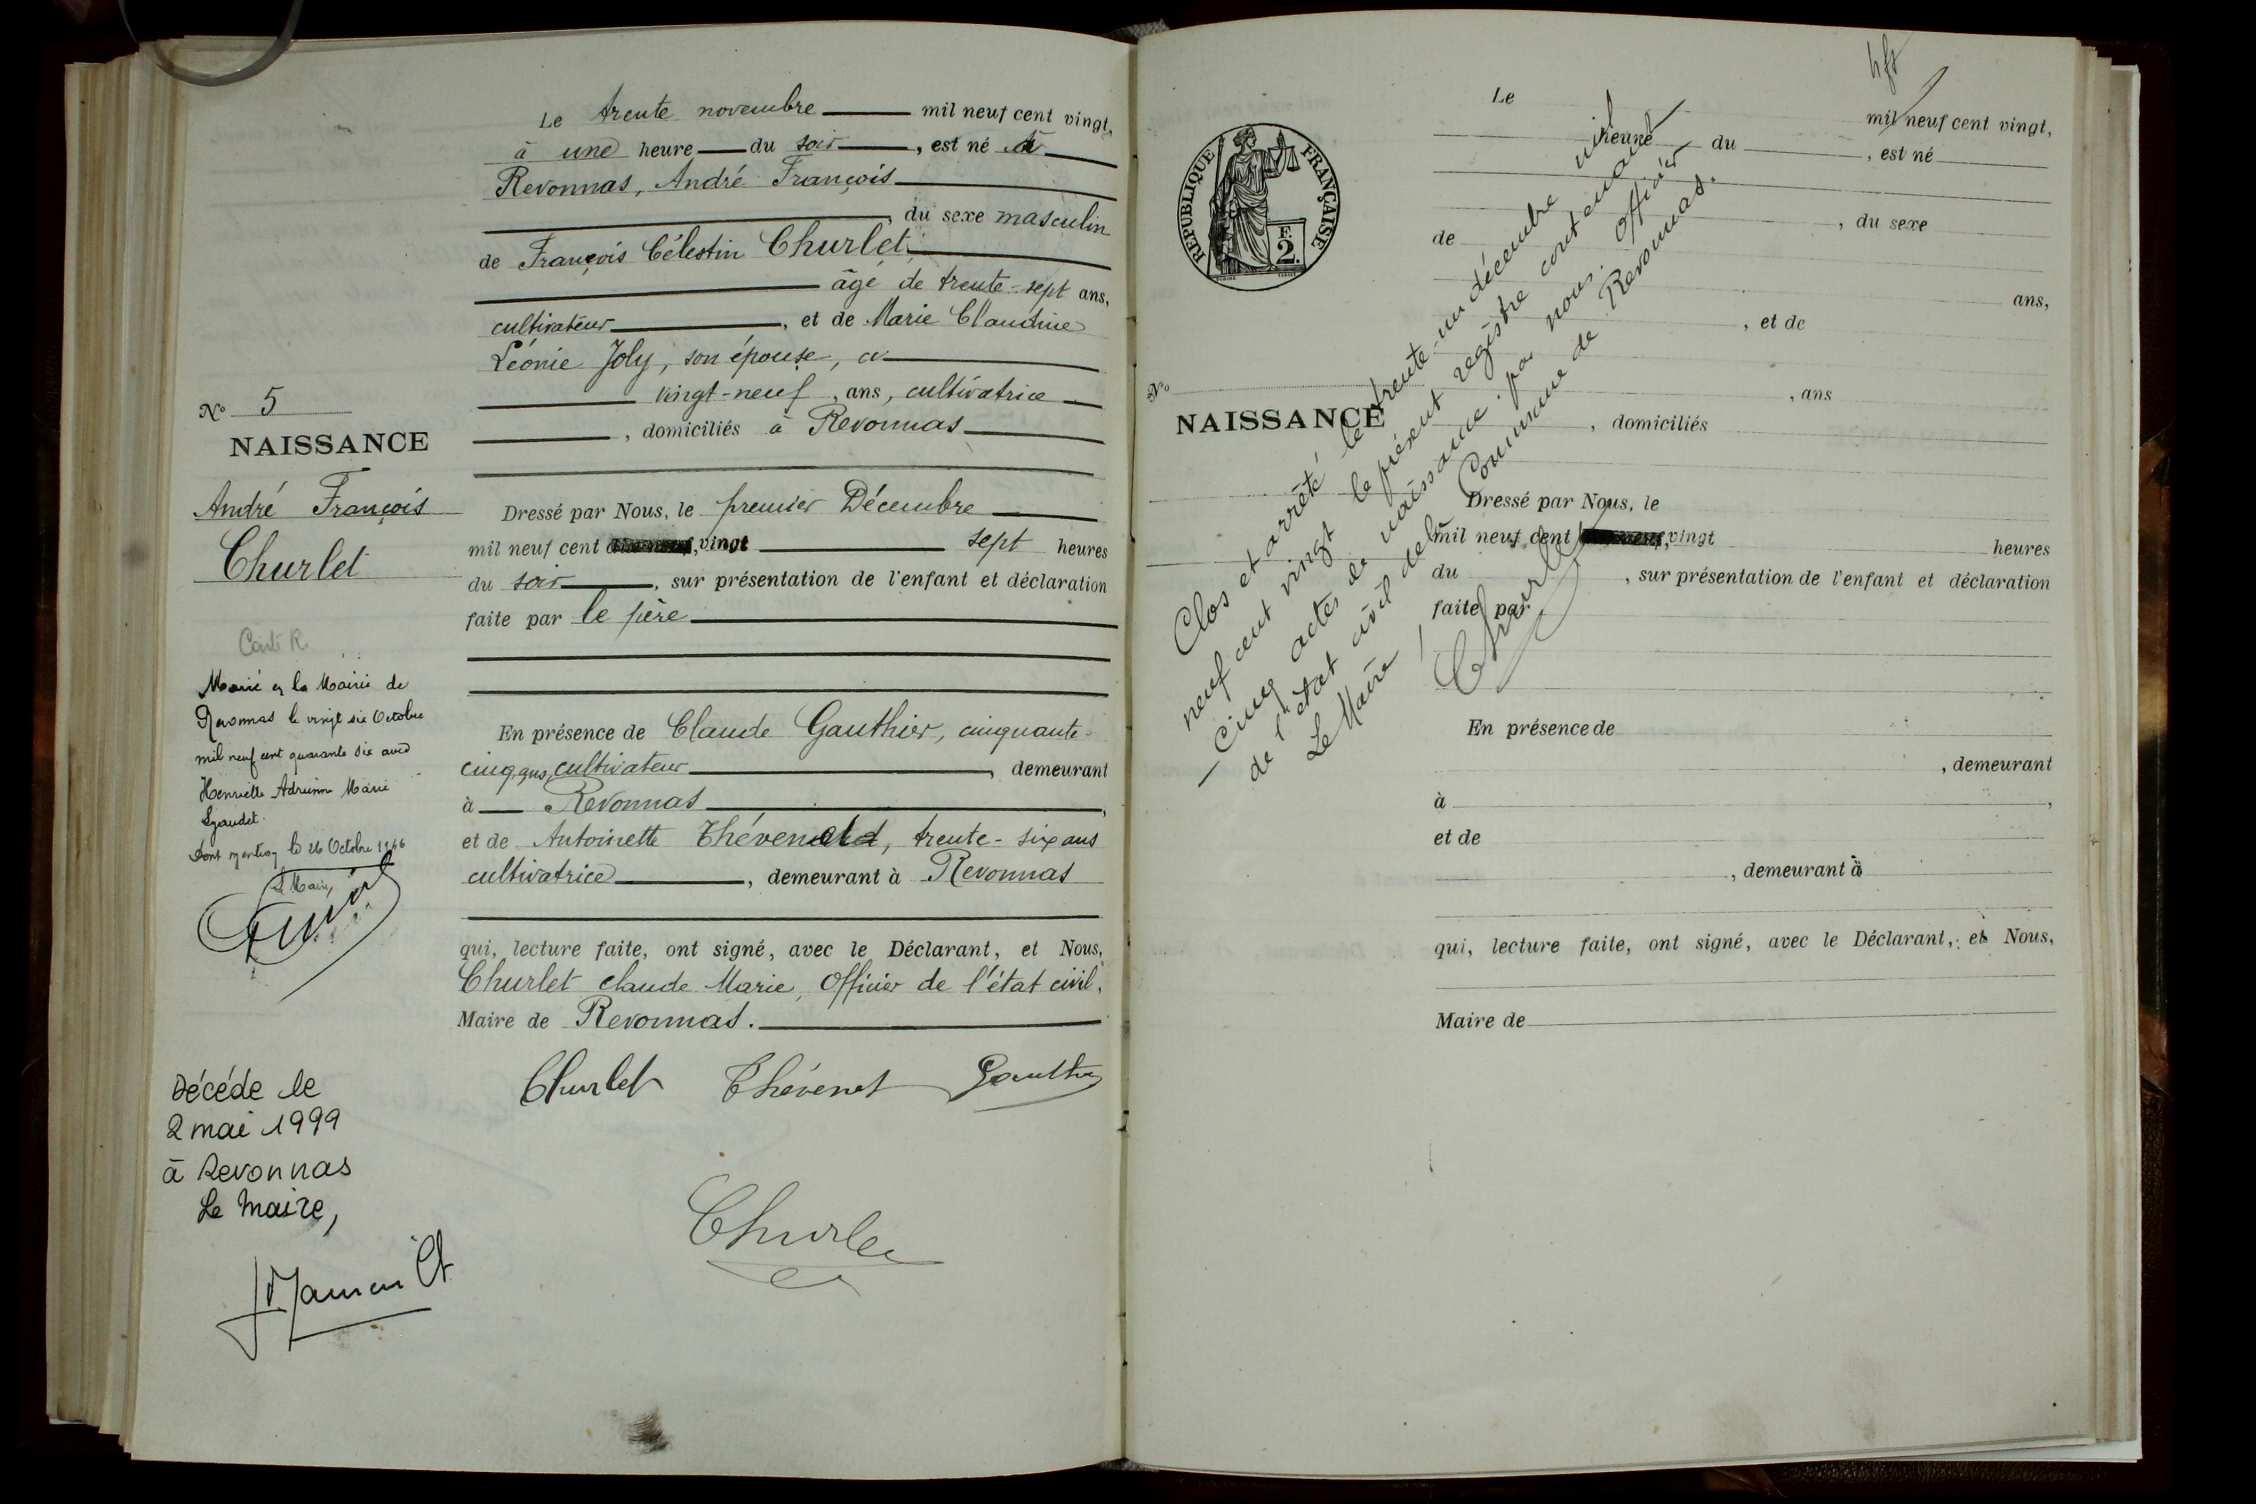 Le trente novembre mil neuf cent vingt,
à une heure du soir, est né à
Revonnas, André François
, du sexe masculin
de François Célestin Churlet
âgé de trente-sept ans,
cultivateur, et de Marie Claudine
Léonie Joly, son épouse,
vingt-neuf, ans, cultivatrice
, domiciliés à Revonnas
No 5
NAISSANCE
André François
Churlet
Dressé par Nous, le premier Décembre
mil neuf cent vingt sept heures
du soir, sur présentation de l'enfant et déclaration
faite par le père
En présence de Claude Gauthier, cinquante-
cinq ans, cultivateur, demeurant
à Revonnas,
et de Antoinette, trente-six ans
cultivatrice, demeurant à Revonnas
qui, lecture faite, ont signé, avec le Déclarant, et Nous,
Churlet Claude Marie, Officier de l'état civil,
Maire de Revonnas.
Churlet Thévenet Gauthier
Churlet
Marié à la Mairie de
Revonnas le vingt six Octobre
mil neuf cent quarante six avec
Henriette Adrienne Marie
Dont mention le 26 Octobre 1946
Le Maire
Décéde le
2 mai 1999
à Revonnas
Le Maire,
REPUBLIQUE FRANÇAISE
F.
2.
Le mil neuf cent vingt,
heure du , est né
, du sexe
de
ans,
, et de
, ans
No
NAISSANCE
, domiciliés
Dressé par Nous, le
mil neuf cent vingt heures
du , sur présentation de l'enfant et déclaration
faite par
En présence de
, demeurant
à ,
et de
, demeurant à
qui, lecture faite, ont signé, avec le Déclarant, et Nous,
Maire de
Clos et arrêté le trente-un décembre mil
neuf cent vingt le présent registre contenant
cinq actes de naissance par nous. Officier
de l'état civil de la Commune de Revonnas.
Le Maire
Churlet